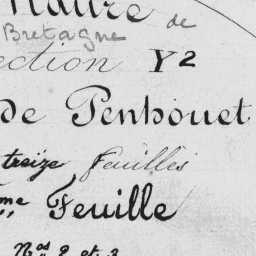 de
Bretagne
ection Y2
de Penhouet
treize feuilles
me Feuille
Nos 2 et 3